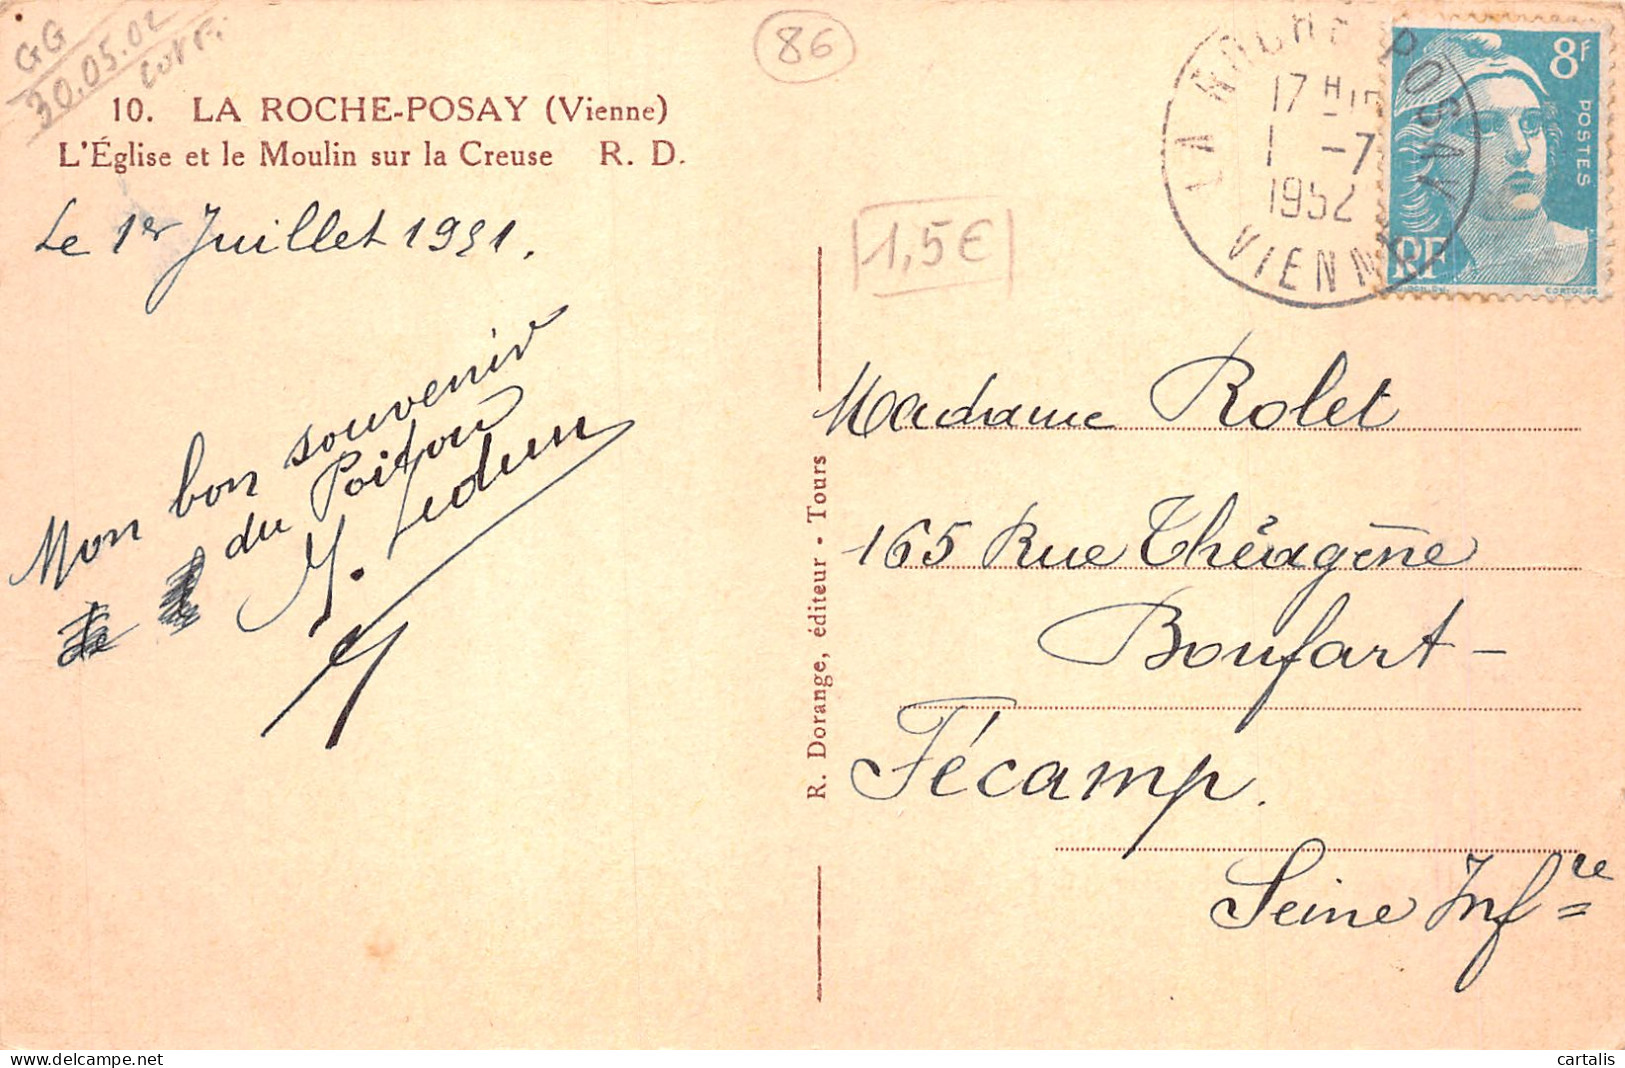 GG
30.05.02
86
10. LA ROCHE-POSAY (Vienne)
L'Église et le Moulin sur la Creuse R. D.
Le 1er Juillet 1951.
Mon bon souvenir
du Poitou
1,5€
R. Dorange, éditeur - Tours
LA ROCHE POSAY
17 H
1 -7
1952
VIENNE
8F
POSTES
RF
Madame Rolet
165 Rue Théagène
Boufart-
Fécamp.
Seine Infre
delcampe.net
cartalis